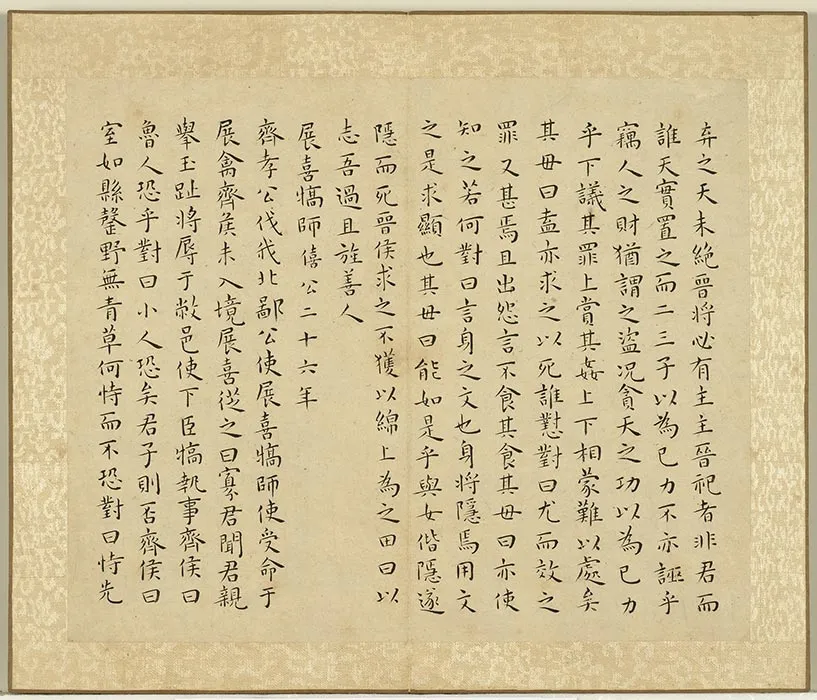 弃之天未絶晉將必有主主晉祀者非君而
誰天實置之而二三子以為己力不亦誣乎
竊人之財猶謂之盜况貪天之功以為己力
乎下議其罪上賞其姦上下相蒙難以處矣
其母曰盍亦求之以死誰懟對曰尤而效之
罪又甚焉且出怨言不食其食其母曰亦使
知之若何對曰言身之文也身將隱焉用文
之是求顯也其母曰能如是乎與女偕隱遂
隱而死晉侯求之不獲以綿上為之田曰以
志吾過且旌善人
展喜犒師僖公二十六年
齊孝公伐我北鄙公使展喜犒師使受命于
展禽齊侯未入境展喜從之曰寡君聞君親
舉玉趾將辱于敝邑使下臣犒執事齊侯曰
魯人恐乎對曰小人恐矣君子則否齊侯曰
室如縣罄野無青草何恃而不恐對曰恃先